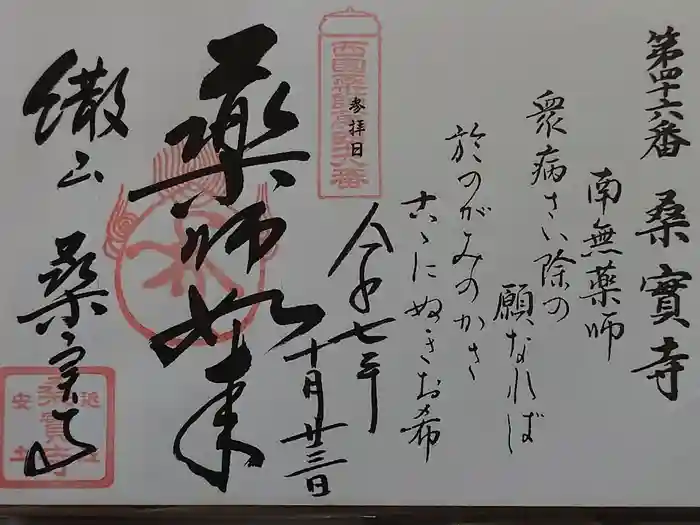 第四十六番 桑實寺
南無薬師
衆病さい除の
願なれば
於のがみのかさ
こゝにぬきお希
西國薬師第四十六番
参拝日
令和七年
十月廿三日
薬師如来
繖山 桑実寺
桑實寺